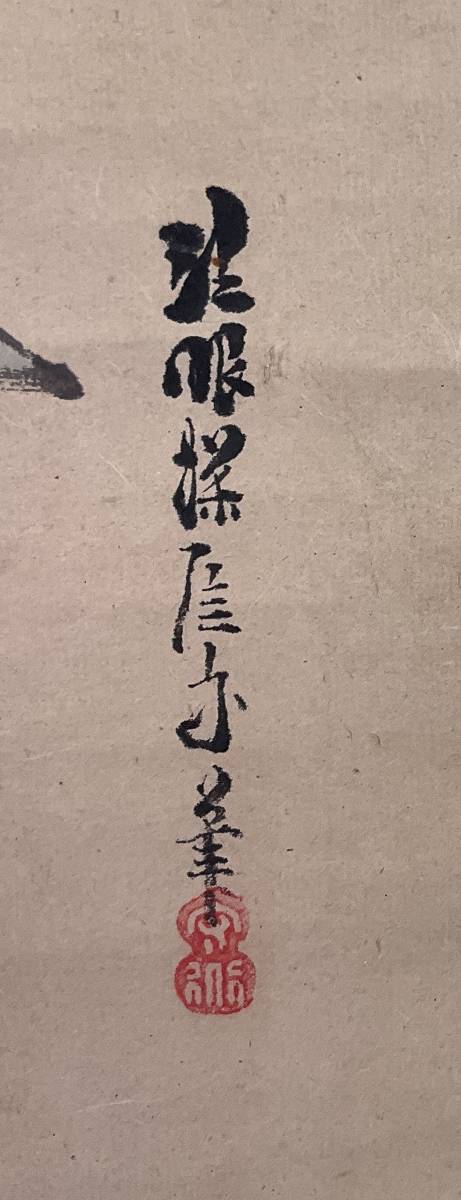 法眼探信守筆